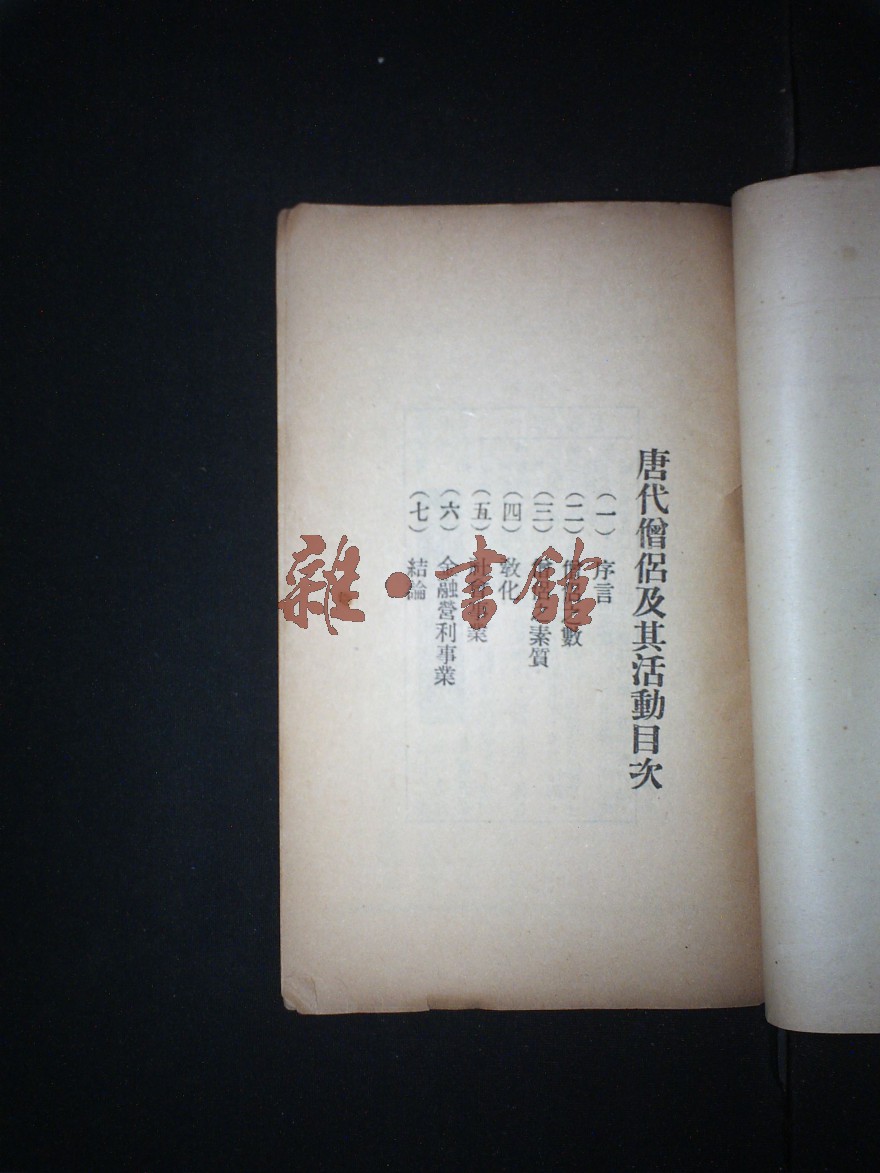 唐代僧侶及其活動目次
(一) 序言
(二) 僧侶之數
(三) 僧侶之素質
(四) 敎化
(五) 社會事業
(六) 金融營利事業
(七) 結論
雜·書館